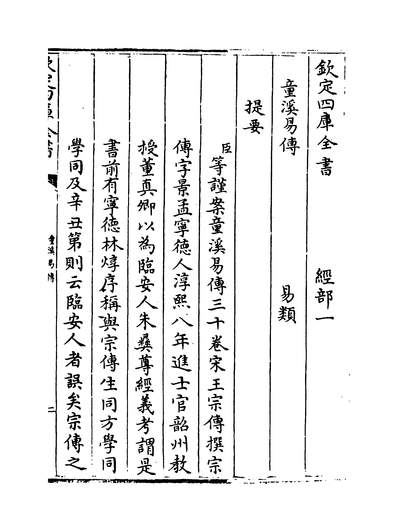 欽定四庫全書　　　經部一
童溪易傳　　　易類
提要
臣等謹案童溪易傳三十卷宋王宗傳撰宗
傳字景孟寧德人淳熙八年進士官韶州教
授董真卿以為臨安人朱彝尊經義考謂是
書前有寧德林焞序稱與宗傳生同方學同
學同及辛丑第則云臨安人者誤矣宗傳之
欽定四庫全書
童溪易傳
二